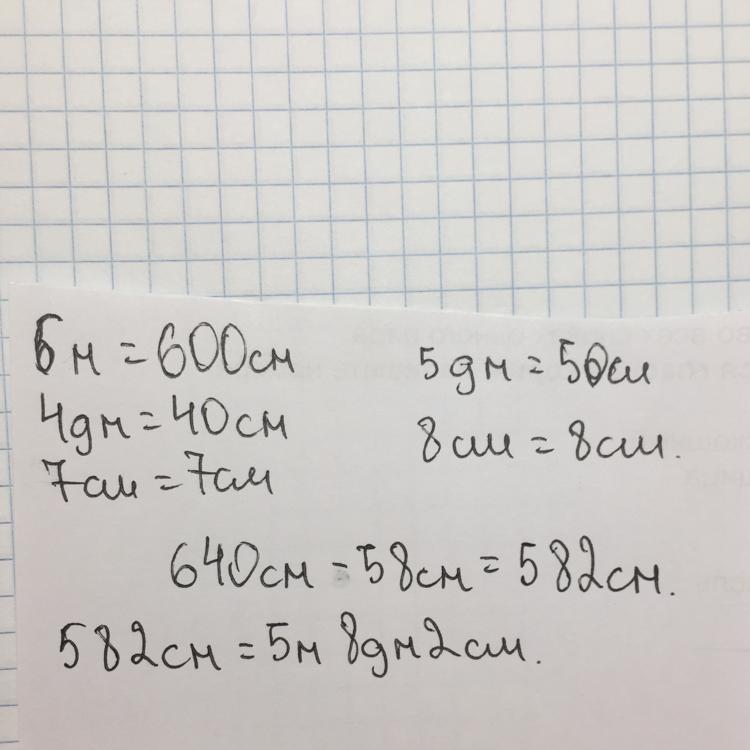 6м = 600см
4дм = 40см
7см = 7см
5дм = 50см
8см = 8см.
640см - 58см = 582см.
582см = 5м 8дм 2см.